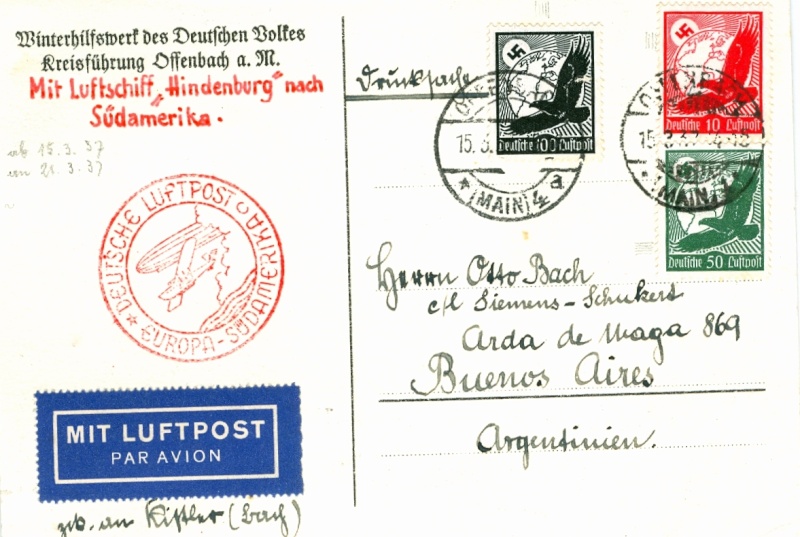 Winterhilfswerk des Deutschen Volkes
Kreisführung Offenbach a. M.
Mit Luftschiff „Hindenburg" nach
Südamerika.
ab 15.3.37
an 21.3.37
DEUTSCHE LUFTPOST
EUROPA-SÜDAMERIKA
MIT LUFTPOST
PAR AVION
an Kistler (Bach)
Drucksache
Deutsche 100 Luftpost
15.3.
(MAIN) 4
a
Deutsche 10 Luftpost
15
(MAIN)
Deutsche 50 Luftpost
Herrn Otto Bach
c/l Siemens-Schukert
Arda de Maga 869
Buenos Aires
Argentinien.